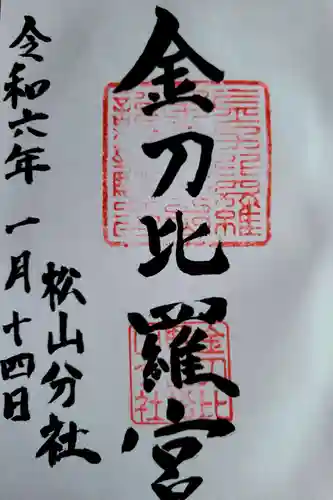 金刀比羅宮
松山分社
令和六年一月十四日